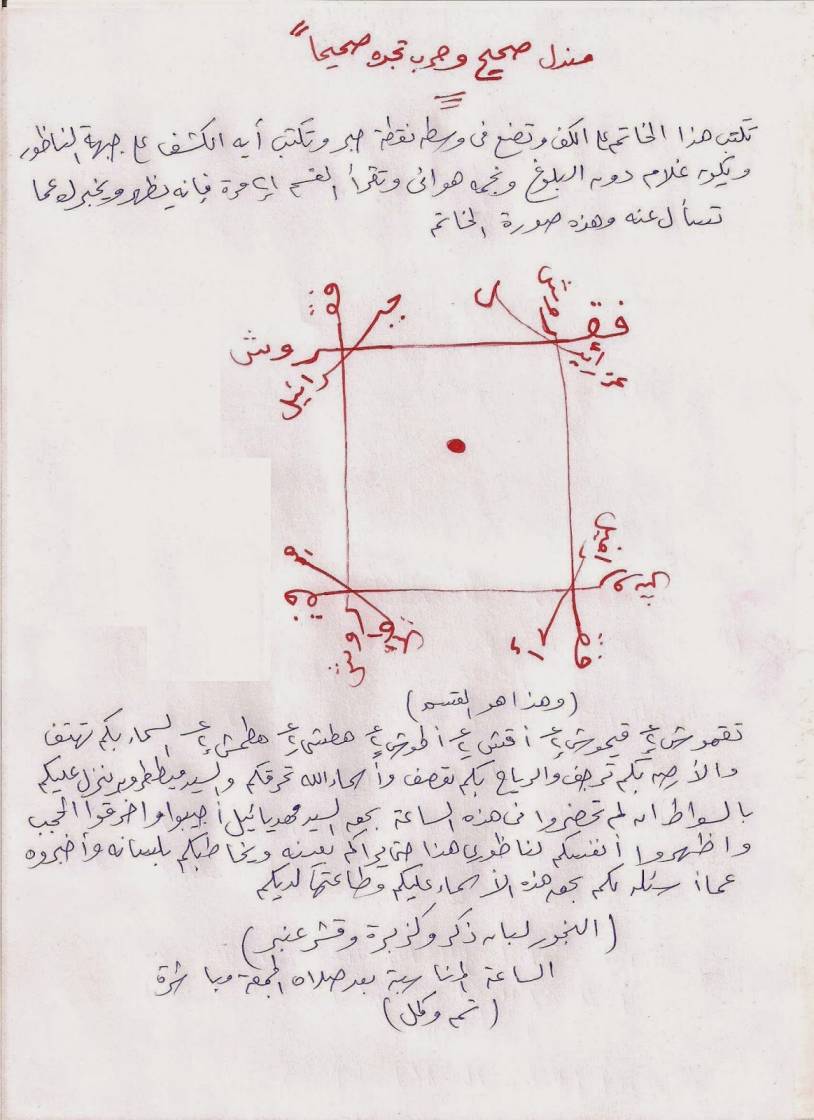 مندل صحيح ومجرب تجده صحيحا"
تكتب هذا الخاتم على الكف وتضع فى وسطه نقطة حبر وتكتب أيه الكشف على جبهة الناظور
ويكون غلام دون البلوغ ونجمه هوائى وتقرأ القسم مرة فإنه يظهر ويخبرك عما
تسأل عنه وهذه صورة الخاتم
جبرائيل
فقروش
عزرائيل
(وهذا هو القسم)
تقموش قيموش أقش أطوش هطش هطمش السماء بكم تهتف
والأرض بكم ترجف والرياح بكم تقصف وأسماء الله تحرقكم والسيد ميططرون ينزل عليكم
بالسواط ان لم تحضروا فى هذه الساعة بحق السيد مهديائيل أجيبوا واخرقوا الحجب
واظهروا أنفسكم لناظورى هذا حتى يراكم بعينه ويخاطبكم بلسانه وأخبروه
عما أسئلكم بحق هذه الأسماء عليكم وطاعتها لديكم
(البخور لبان ذكر وكزبرة وقشر عنبر)
الساعة المناسبة بعد صلاه الجمعة مباشرة
(تم وكمل)